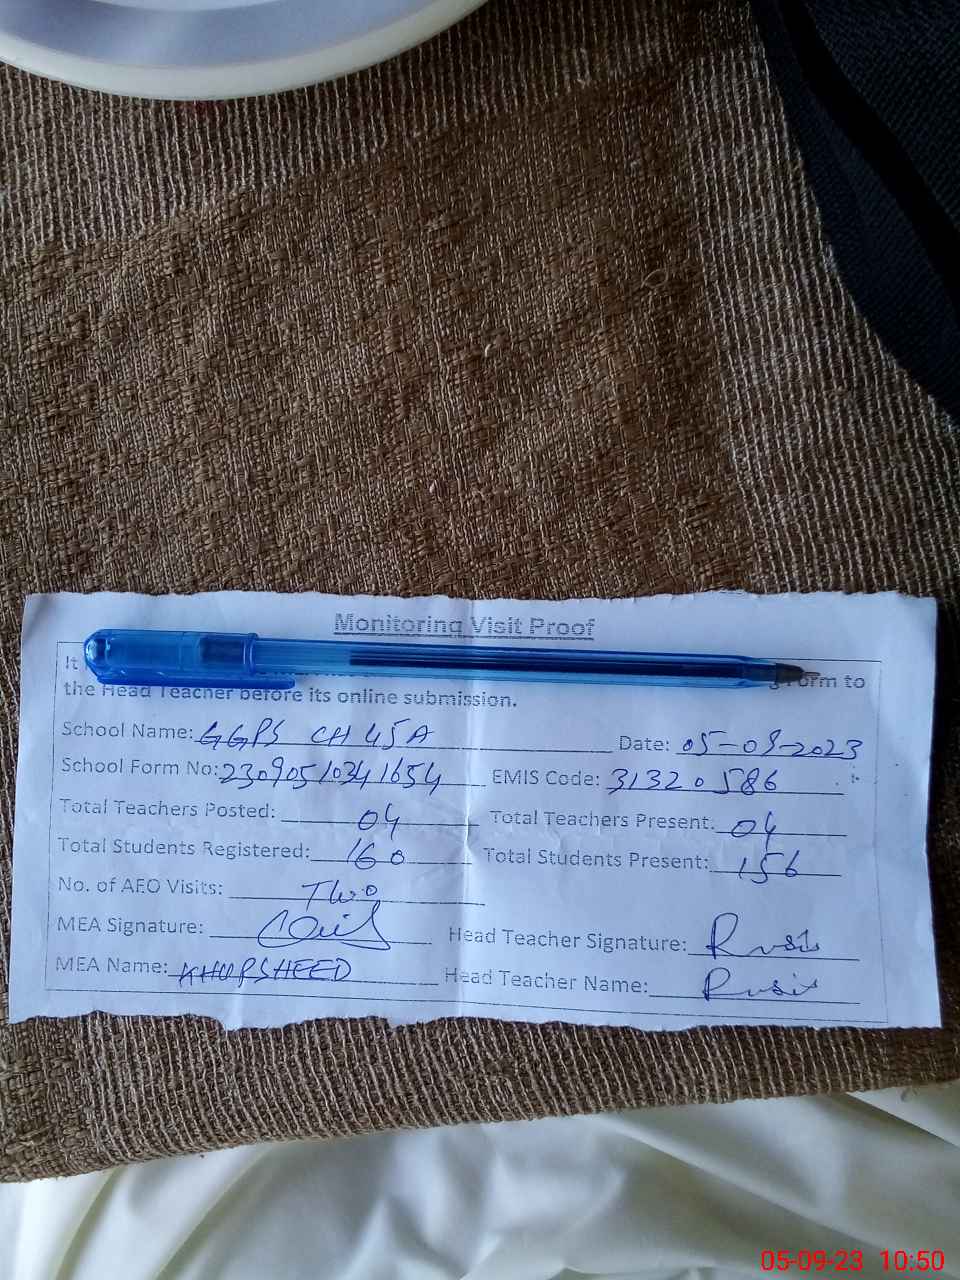 Monitoring Visit Proof
It
form to
the Head Teacher before its online submission.
School Name: GGPS CH 45A Date: 05-09-2023
School Form No: 23090510341654 EMIS Code: 31320586
Total Teachers Posted: 04 Total Teachers Present: 04
Total Students Registered: 160 Total Students Present: 156
No. of AEO Visits: Two
MEA Signature: Head Teacher Signature:
MEA Name: KHURSHEED Head Teacher Name:
05-09-23 10:50